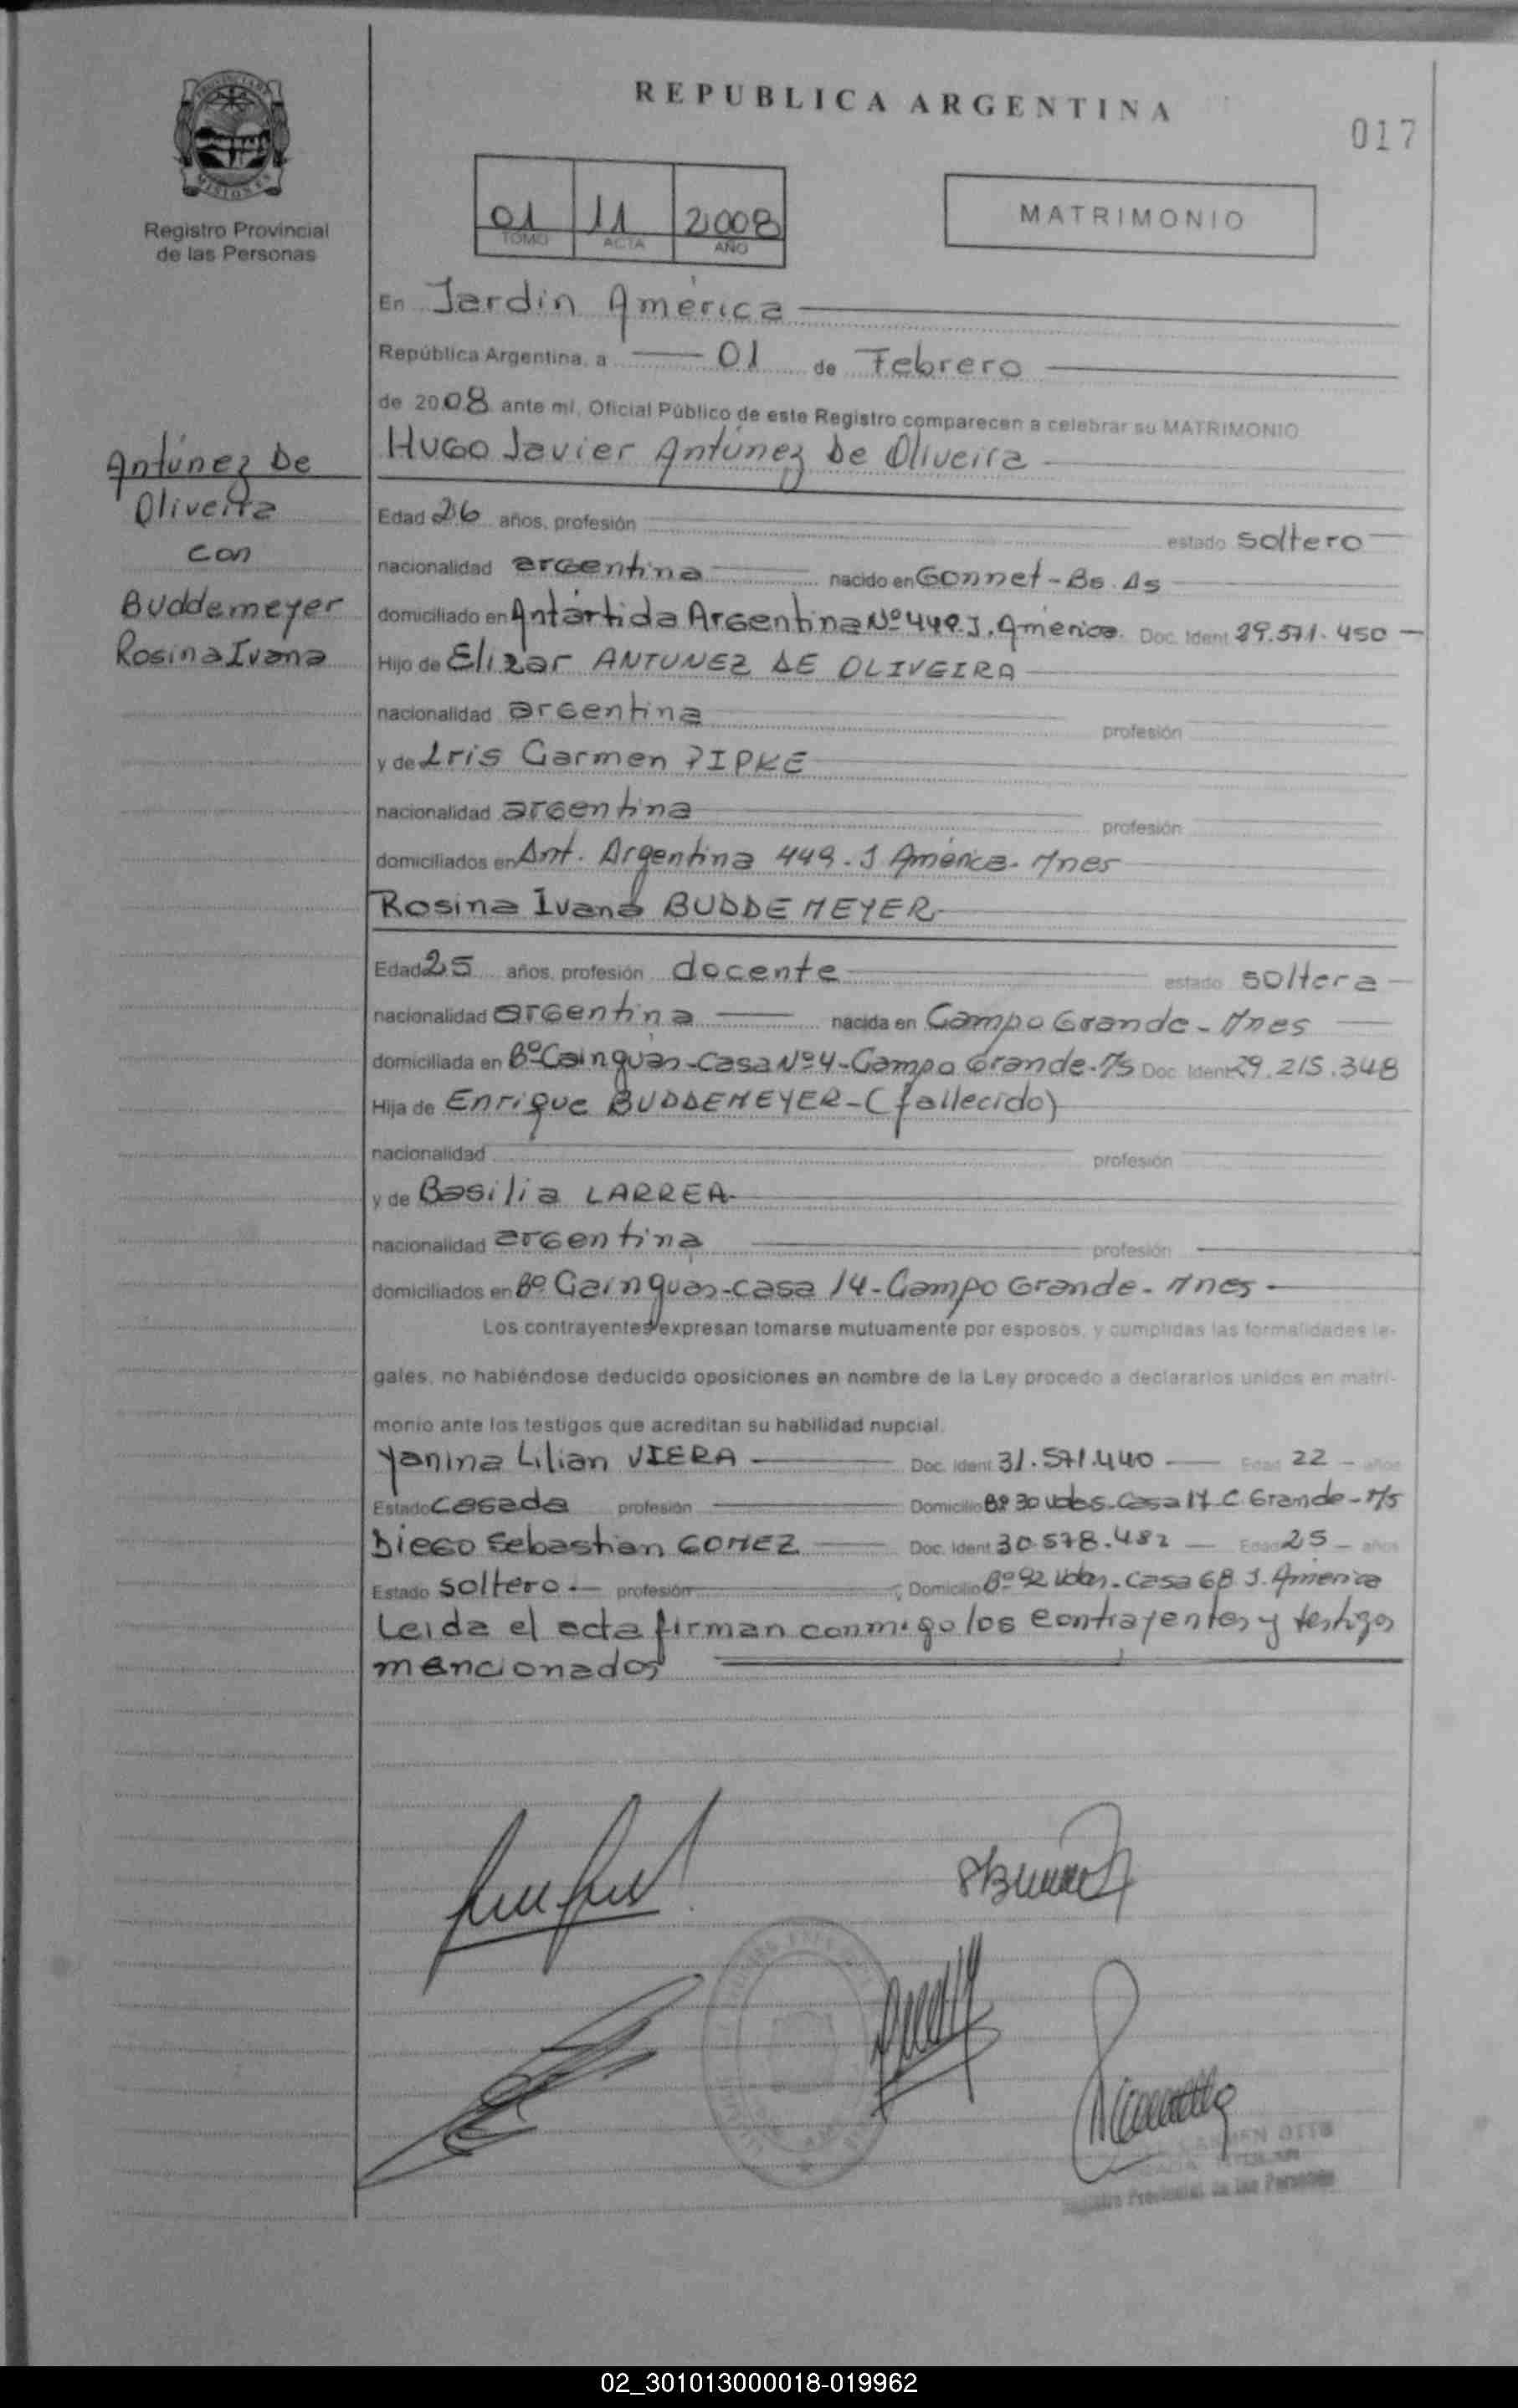 REPUBLICA ARGENTINA
017
PROVINCIA DE MISIONES
Registro Provincial
de las Personas
01 11 2008
TOMO ACTA AÑO
MATRIMONIO
En Jardin América
República Argentina, a 01 de Febrero
de 2008 ante mí, Oficial Público de este Registro comparecen a celebrar su MATRIMONIO
Hugo Javier Antúnez De Oliveira
Antúnez De
Oliveira
con
Buddemeyer
Rosina Ivana
Edad 26 años, profesión estado soltero
nacionalidad argentina nacido en Gonnet - Bs. As
domiciliado en Antártida Argentina Nº 449. J. América. Doc. Ident 29.571.450
Hijo de Elizar ANTUNEZ DE OLIVEIRA
nacionalidad argentina profesión
y de Iris Carmen PIPKE
nacionalidad argentina profesión
domiciliados en Ant. Argentina 449 - J América - Mnes
Rosina Ivana BUDDEMEYER
Edad 25 años, profesión docente estado soltera
nacionalidad argentina nacida en Campo Grande - Mnes
domiciliada en Bº Cainguas - Casa Nº 4 - Campo Grande - M/s Doc. Ident 29.215.348
Hija de Enrique BUDDEMEYER - (fallecido)
nacionalidad profesión
y de Basilia LARREA
nacionalidad argentina profesión
domiciliados en Bº Cainguas - casa 14 - Campo Grande - Mnes
Los contrayentes expresan tomarse mutuamente por esposos, y cumplidas las formalidades le-
gales, no habiéndose deducido oposiciones en nombre de la Ley procedo a declararlos unidos en matri-
monio ante los testigos que acreditan su habilidad nupcial.
Yanina Lilian VIERA Doc. Ident 31.571.440 Edad 22 años
Estado Casada profesión Domicilio Bº 30 Vdas - Casa 17 C. Grande - M/s
Diego Sebastian GOMEZ Doc. Ident 30.578.482 Edad 25 años
Estado soltero profesión Domicilio Bº 92 Vdas - Casa 68 J. América
Leida el acta firman conmigo los contrayentes y testigos
mencionados
CARMEN OTTO
Registro Provincial de las Personas
02_301013000018-019962